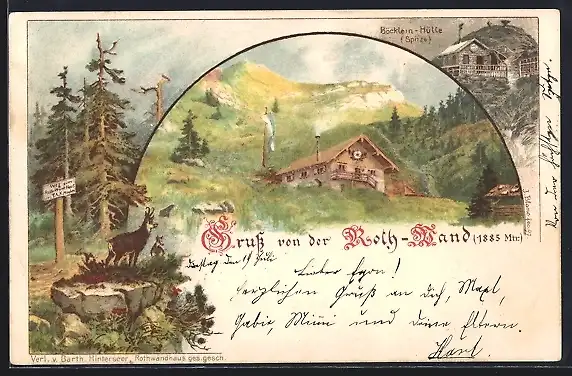 Böcklein-Hütte
(Spitze)
Gruß von der Roth-Wand (1885 Mtr.)
Dienstag den 19 Juli
Lieber Egon!
herzlichen Gruß an dich, Maxl,
Gabie, Mimi und deine Eltern.
Karl.
Verl. v. Barth. Hinterseer, Rothwandhaus ges. gesch.